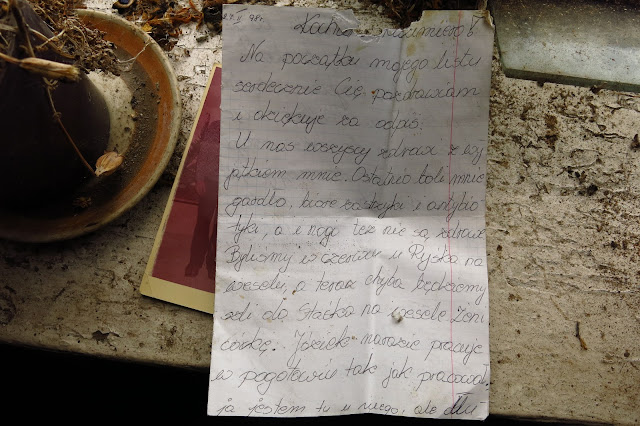 98r.
Kazimiero!
Na początku mojego listu
serdecznie Cię pozdrawiam
i dziękuje za odpis.
U nas wszyscy zdrowi z wy
jątkiem mnie. Ostatnio boli mnie
gardło, biore zastrzyki i antybio
tyki, a i nogi też nie są zdrowe
Byliśmy w czerwcu u Ryśka na
weselu, a teraz chyba będziemy
szli do Staśka na wesele Żeni
córkę. Józiek narazie pracuje
w pogotowiu tak jak pracował.
ja jestem tu u niego, ale dłu-